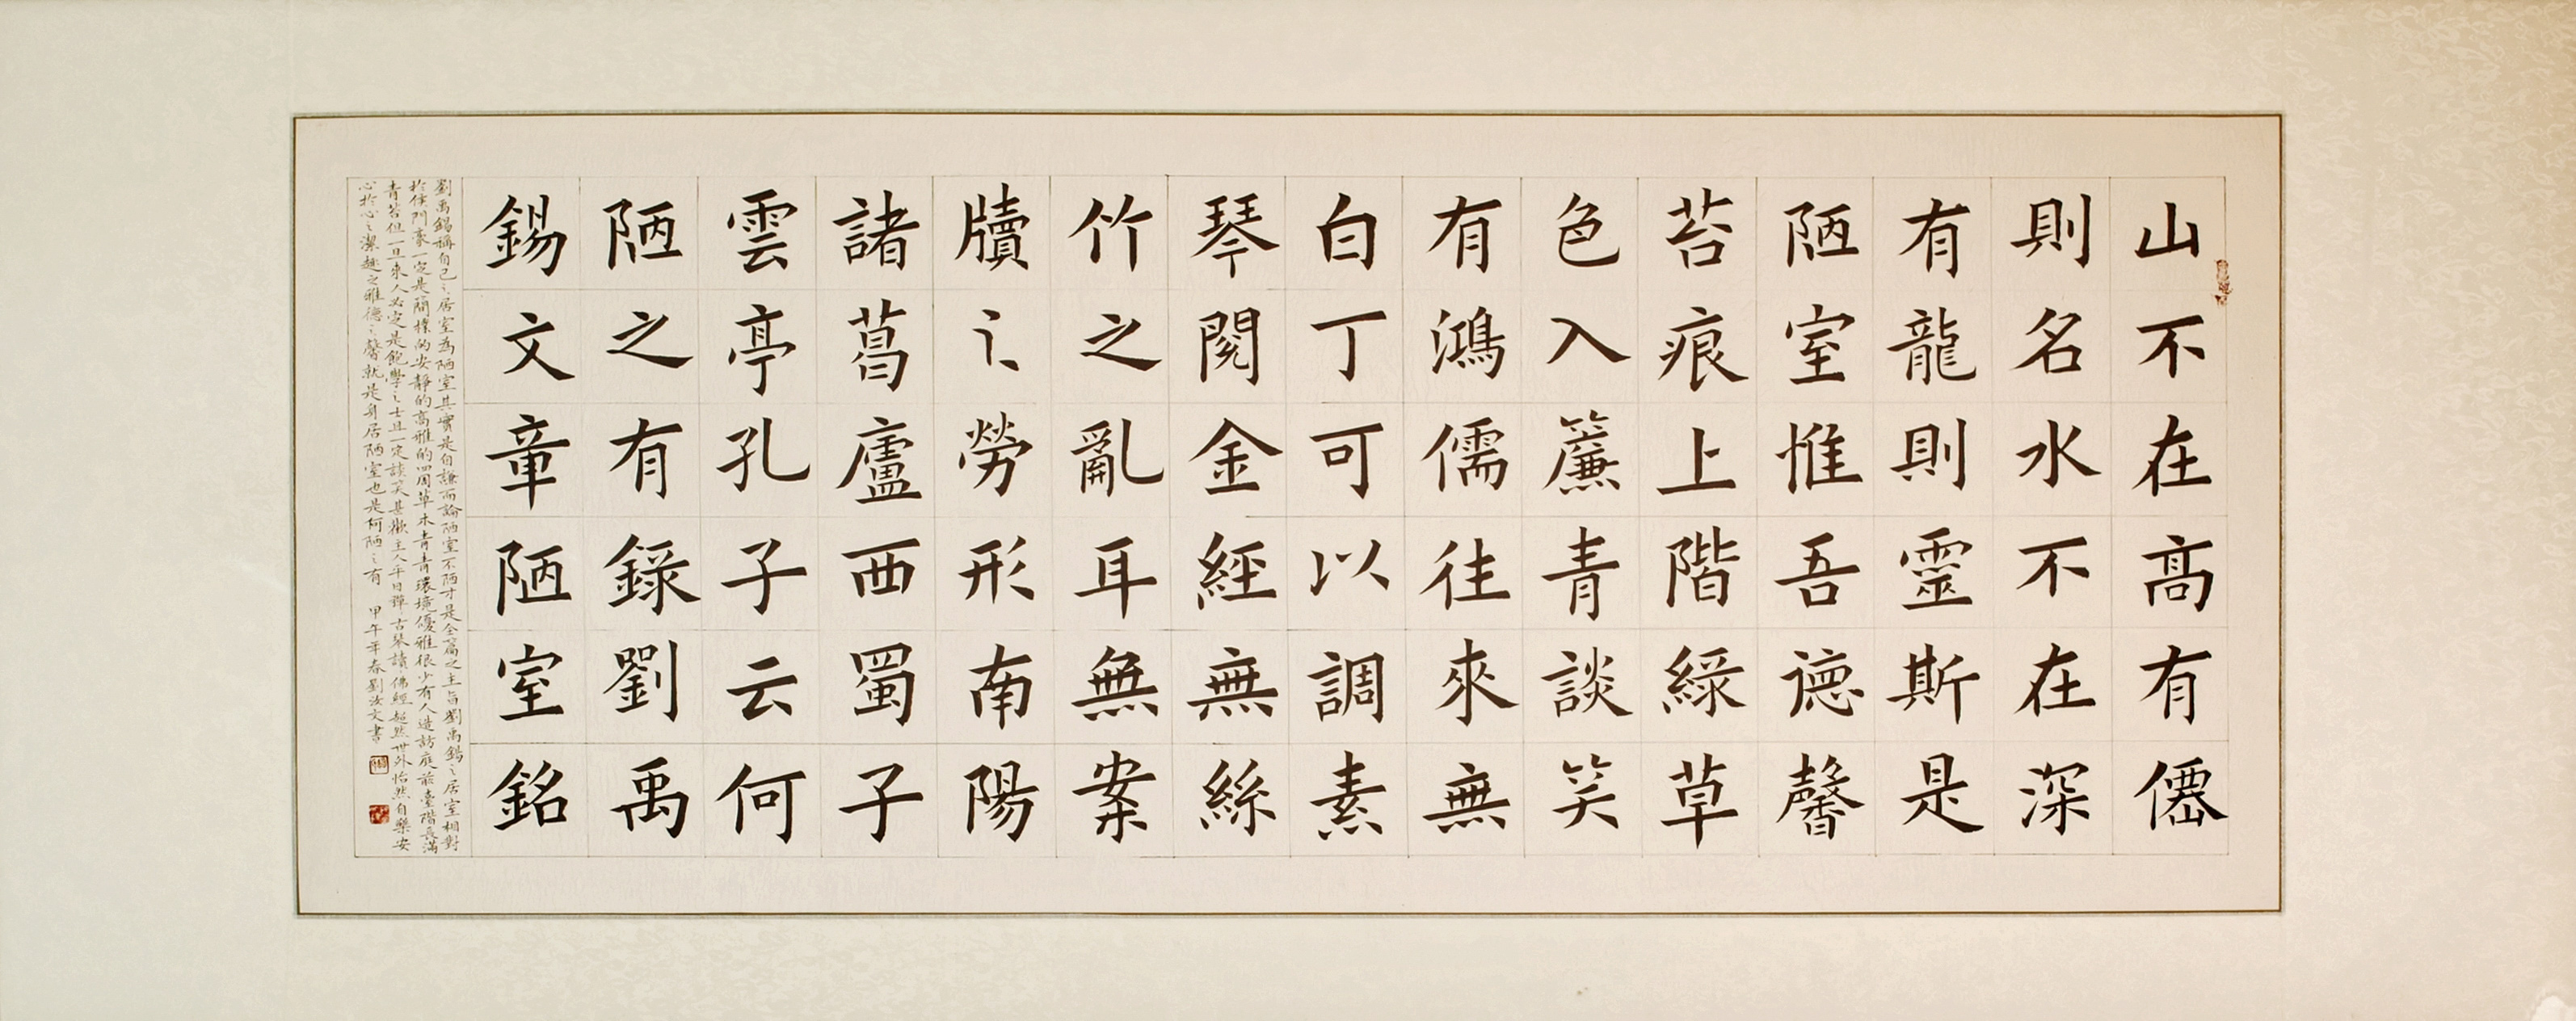 山不在高有僊
則名水不在深
有龍則靈斯是
陋室惟吾德馨
苔痕上階綠草
色入簾青談笑
有鴻儒往來無
白丁可以調素
琴閱金經無絲
竹之亂耳無案
牘之勞形南陽
諸葛廬西蜀子
雲亭孔子云何
陋之有錄劉禹
錫文章陋室銘
劉禹錫稱自己之居室為陋室其實是自謙而論陋室不陋才是全篇之主旨劉禹錫之居室相對
於侯門豪一定是簡樸的安靜的高雅的四周草木青青環境優雅很少有人造訪庭前臺階長滿
青苔但一旦來人必定是飽學之士且一定談笑甚歡主人平日彈古琴讀佛經超然世外怡然自樂安
心於心之潔趣之雅德之馨就是身居陋室也是何陋之有 甲午年春劉汝文書